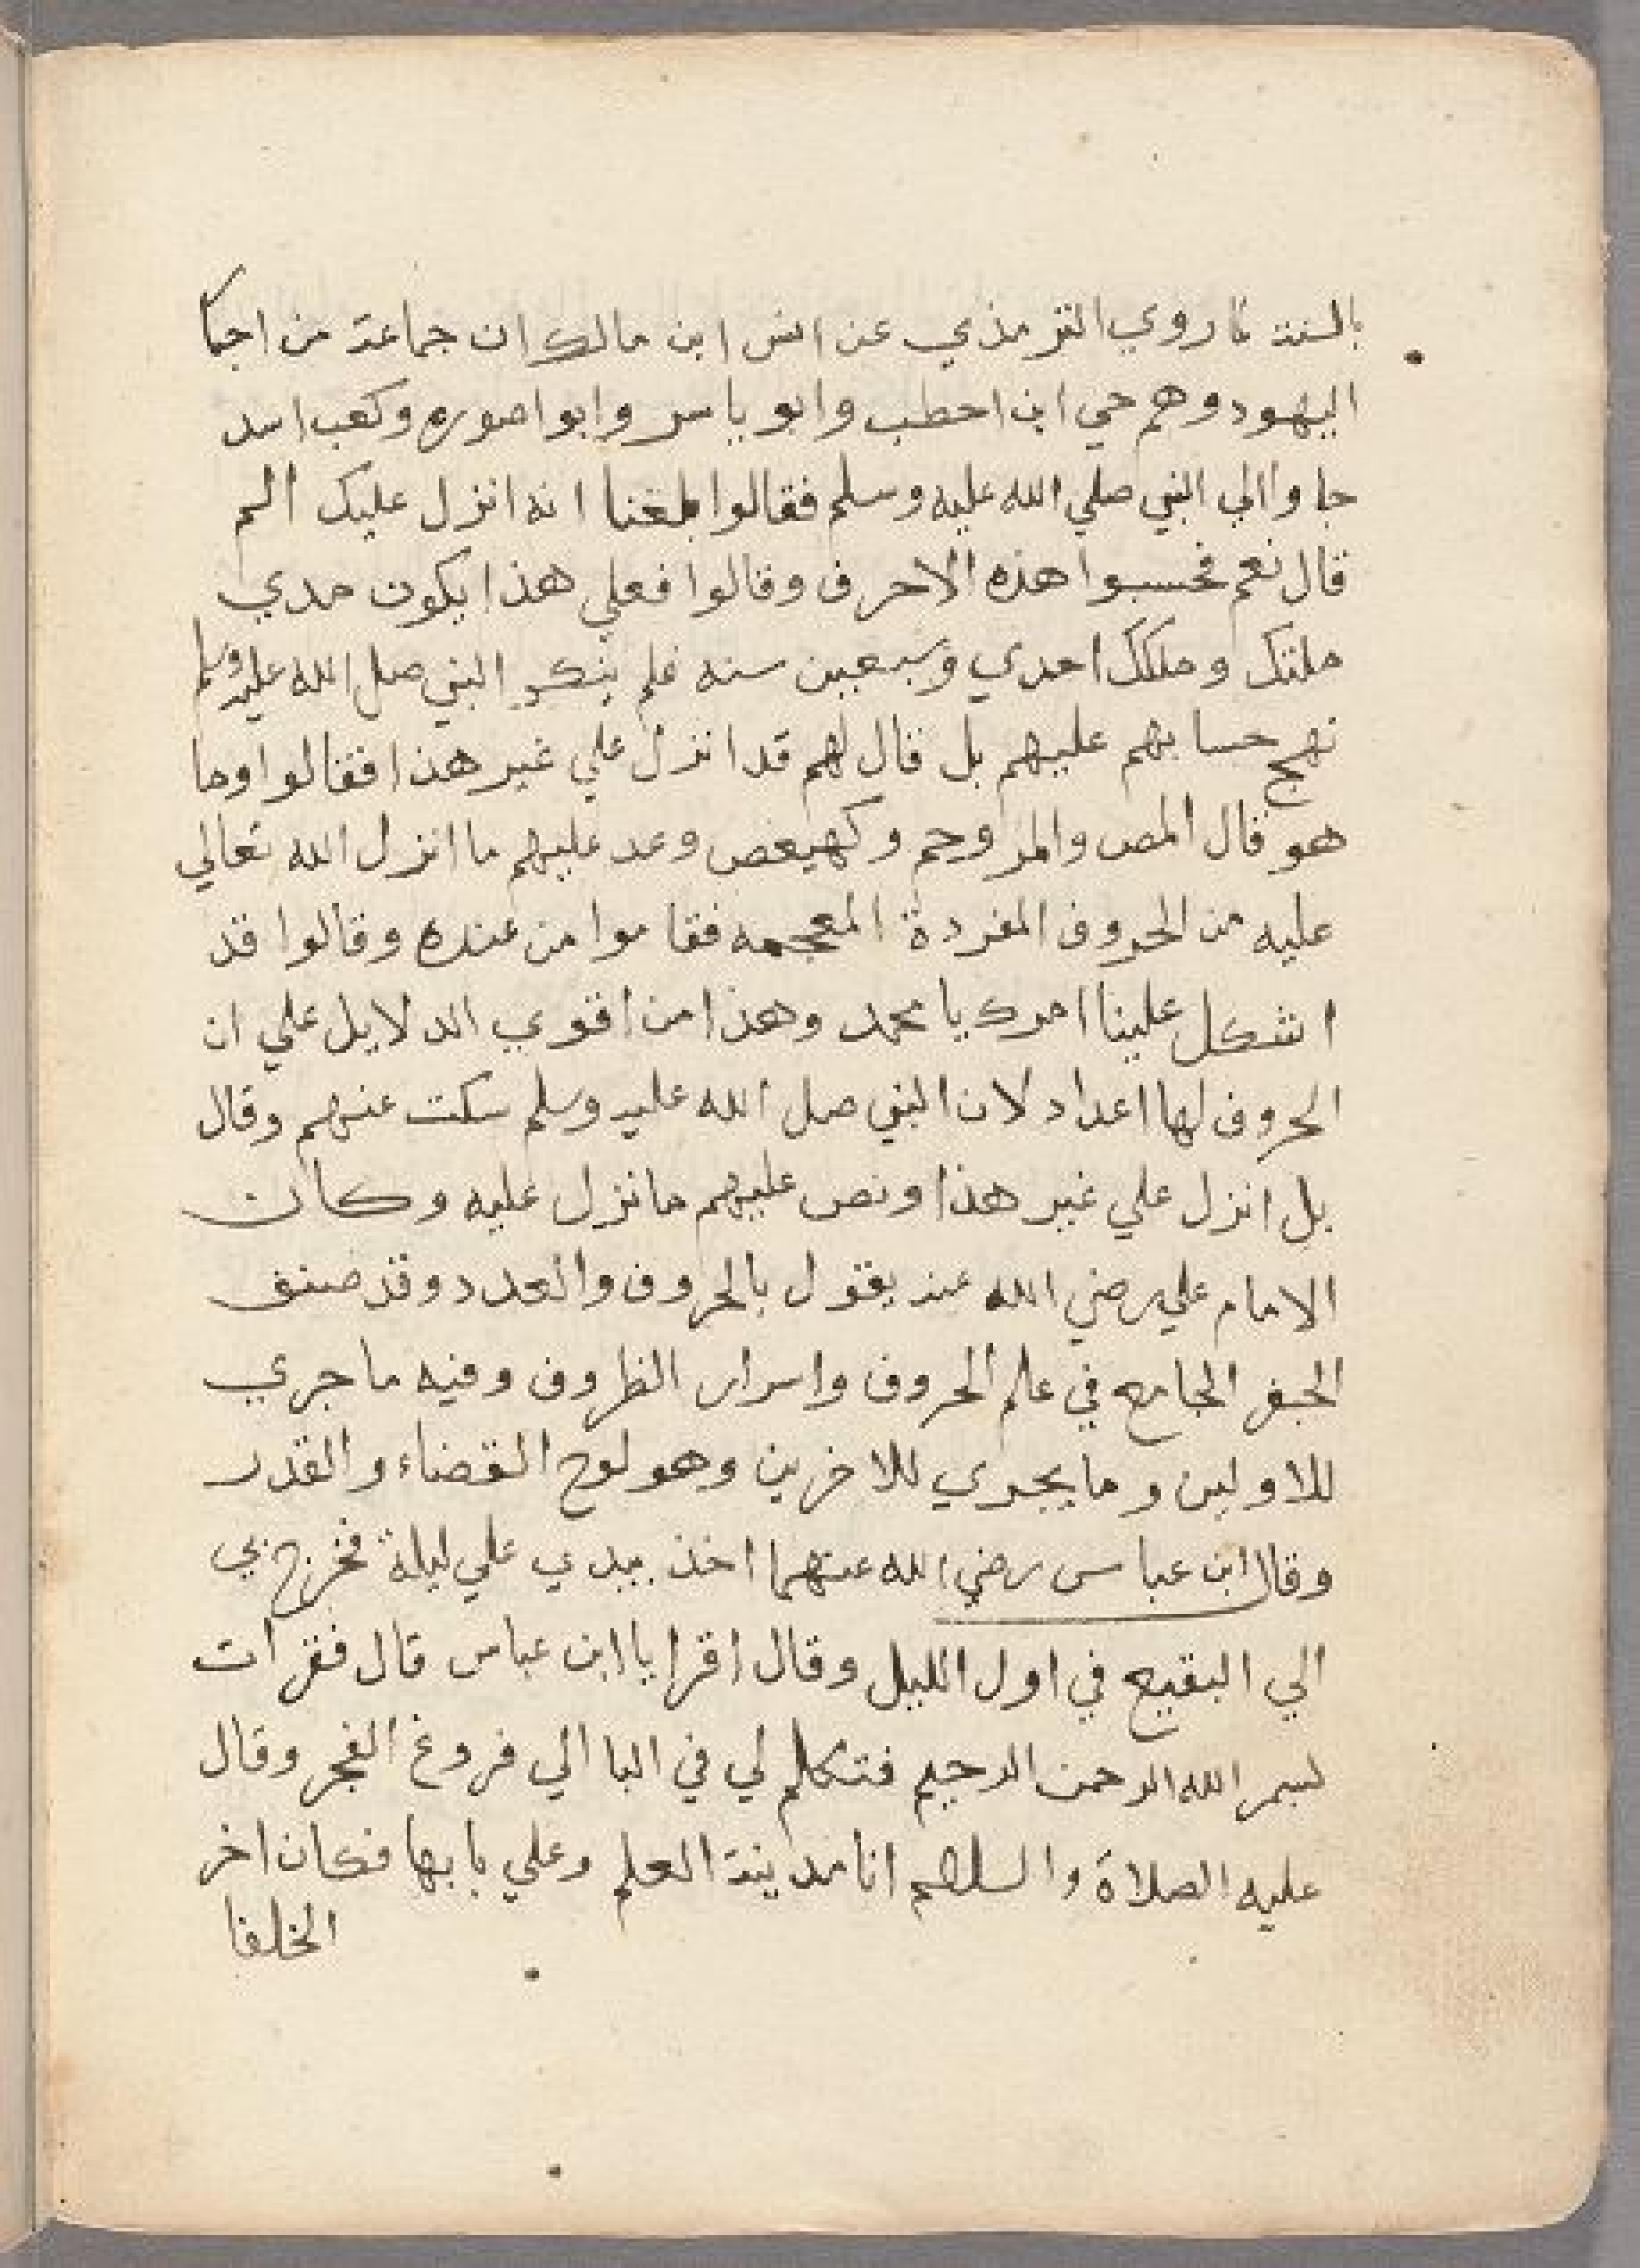 بالسنة ما روي الترمذي عن انس ابن مالك ان جماعة من احبا
اليهود وهم حي ابن احطب وابو ياسر وابو اصوره وكعب اسد
جاوا الي النبي صلي الله عليه وسلم فقالوا بلغنا انه انزل عليك الم
قال نعم فحسبوا هذه الاحرف وقالوا فعلي هذا يكون مدي
ملتك وملكك احدي وسبعين سنه فلم ينكر النبي صل الله عليه وسلم
نهج حسابهم عليهم بل قال لهم قد انزل علي غير هذا فقالوا وما
هو قال المص والمر وحم وكهيعص وعد عليهم ما انزل الله تعالي
عليه من الحروف المفردة المعجمه فقاموا من عنده وقالوا قد
اشكل علينا امرك يا محمد وهذا من اقوي الدلايل علي ان
الحروف لها اعداد لان النبي صل الله عليه وسلم سكت عنهم وقال
بل انزل علي غير هذا ونص عليهم ما نزل عليه وكان
الامام علي رضي الله عنه يقول بالحروف والعدد وقد صنف
الجفر الجامع في علم الحروف واسرار الظروف وفيه ما جري
للاولين وما يجري للاخرين وهو لوح القضاء والقدر
وقال ابن عباس رضي الله عنهما اخذ بيدي علي ليلة فخرج بي
الي البقيع في اول الليل وقال اقرا يا ابن عباس قال فقرات
بسم الله الرحمن الرحيم فتكلم لي في البا الي فروغ الفجر وقال
عليه الصلاة والسلام انا مدينة العلم وعلي بابها فكان اخر
الخلفا